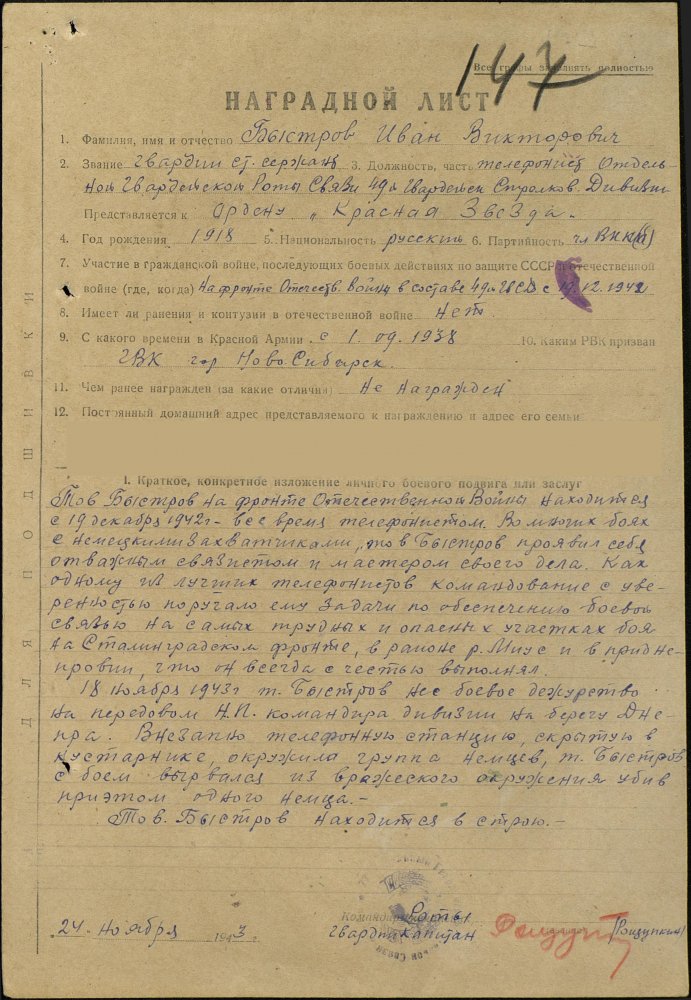 147
Все графы заполнять полностью
НАГРАДНОЙ ЛИСТ
1. Фамилия, имя и отчество Быстров Иван Викторович
2. Звание Гвардии ст. сержант 3. Должность, часть телефонист Отдель-
ной Гвардейской Роты Связи 49й Гвардейск Стрелков. Дивизии
Представляется к Ордену „Красная Звезда.
4. Год рождения 1918 5. Национальность русский 6. Партийность чл ВКП(б)
7. Участие в гражданской войне, последующих боевых действиях по защите СССР и отечественной
войне (где, когда) На фронте Отечеств. Войны в составе 49й ГвСД с 19.12.1942
8. Имеет ли ранения и контузии в отечественной войне Нет
9. С какого времени в Красной Армии с 1.09.1938 10. Каким РВК призван
ГВК гор НовоСибирск.
11. Чем ранее награжден (за какие отличия) Не награжден
12. Постоянный домашний адрес представляемого к награждению и адрес его семьи
I. Краткое, конкретное изложение личного боевого подвига или заслуг
Тов Быстров на фронте Отечественной Войны находится
с 19 декабря 1942г- все время телефонистом. Во многих боях
с немецкими захватчиками, тов Быстров проявил себя
отважным связистом и мастером своего дела. Как
одному из лучших телефонистов командование с уве-
ренностью поручало ему задачи по обеспечению боевой
связью на самых трудных и опасных участках боя
на Сталинградском фронте, в районе р. Миус и в придне-
провии, что он всегда с честью выполнял.
18 ноября 1943г т. Быстров нес боевое дежурство
на передовом Н.П. командира дивизии на берегу Дне-
пра. Внезапно телефонную станцию, скрытую в
кустарнике, окружила группа немцев, т. Быстров
с боем вырвался из вражеского окружения убив
приэтом одного немца.-
Тов. Быстров находится в строю.-
Командир Роты
24. ноября 1943 г. Гвардии капитан (Рощупкин)
ДЛЯ ПОДШИВКИ